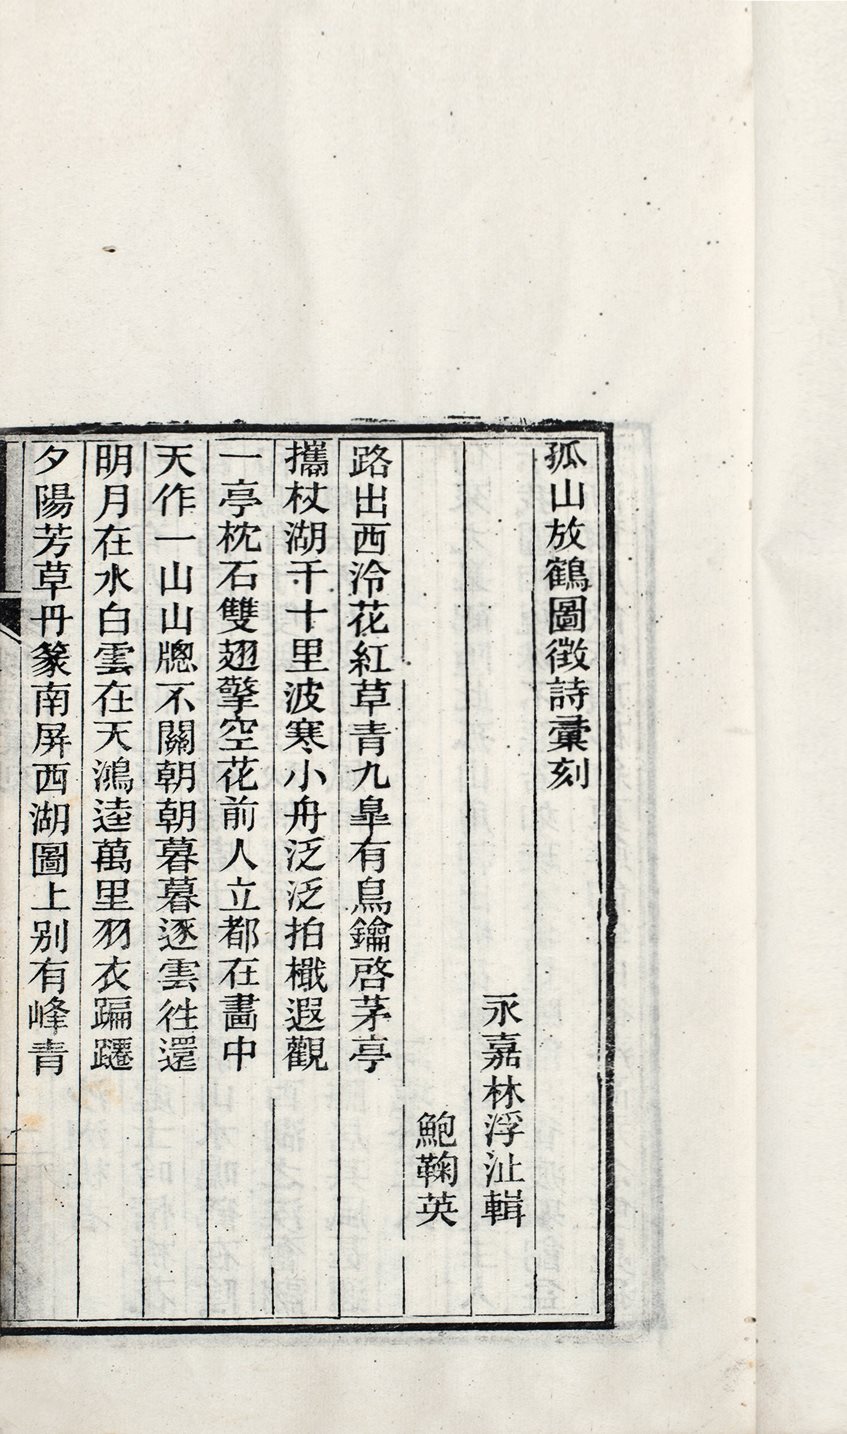 孤山放鶴圖徵詩彙刻
永嘉林浮沚輯
鮑鞠英
路出西泠花紅草青九臯有鳥鑰啓茅亭
攜杖湖干十里波寒小舟泛泛拍檝遐觀
一亭枕石雙翅擎空花前人立都在畵中
天作一山山牕不關朝朝暮暮逐雲徃還
明月在水白雲在天鴻逵萬里羽衣蹁躚
夕陽芳草丹篆南屏西湖圖上别有峰青